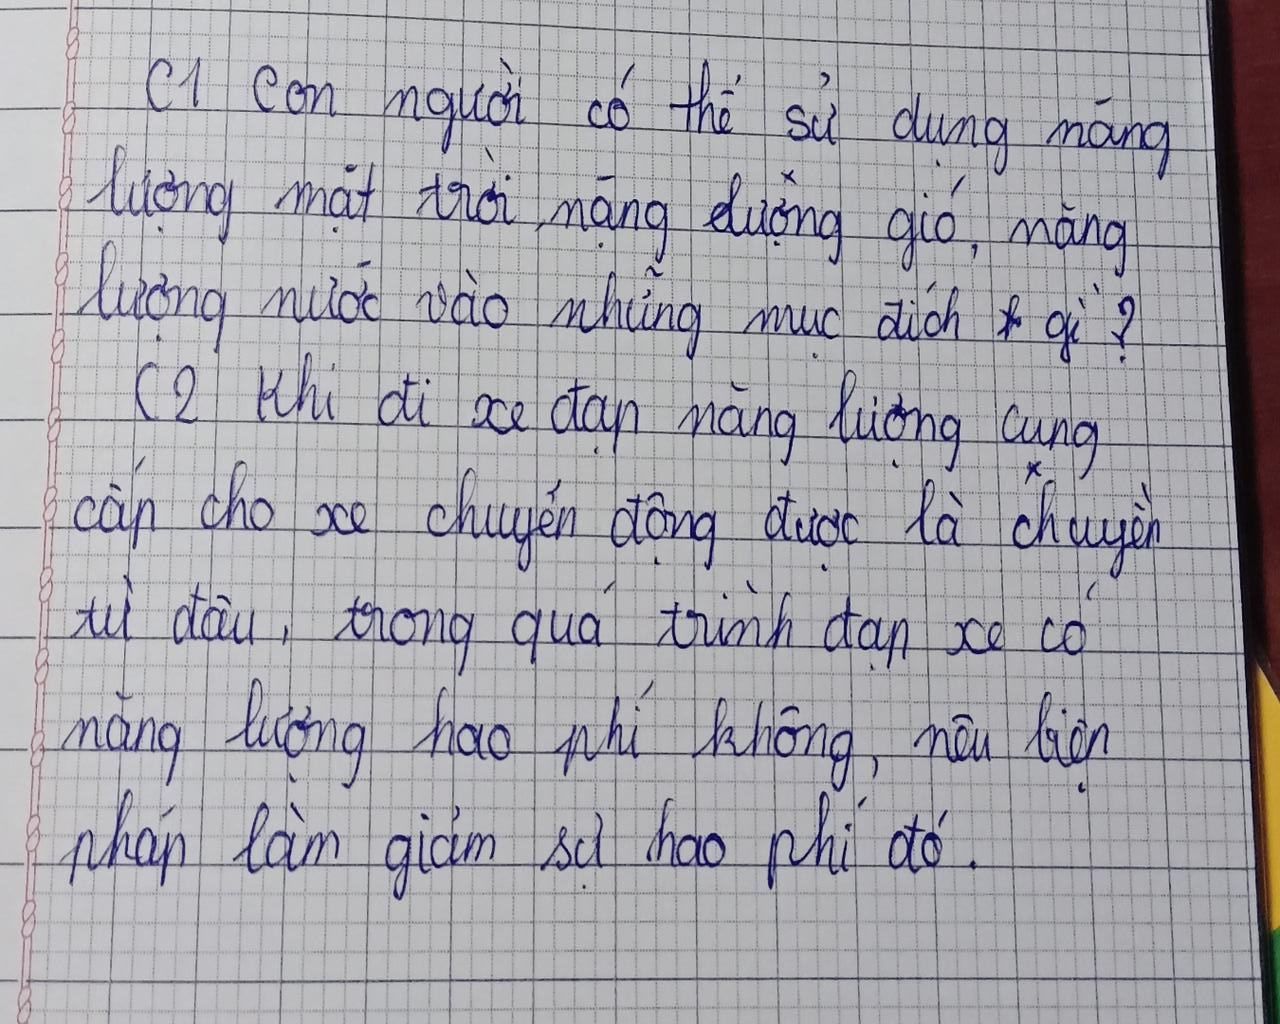 C1 Con người có thể sử dụng năng
lượng mặt trời, năng lượng gió, năng
lượng nước vào những mục đích gì?
C2 Khi đi xe đạp năng lượng cung
cấp cho xe chuyển động được là chuyển
từ đâu, trong quá trình đạp xe có
năng lượng hao phí không, nêu biện
pháp làm giảm sự hao phí đó.